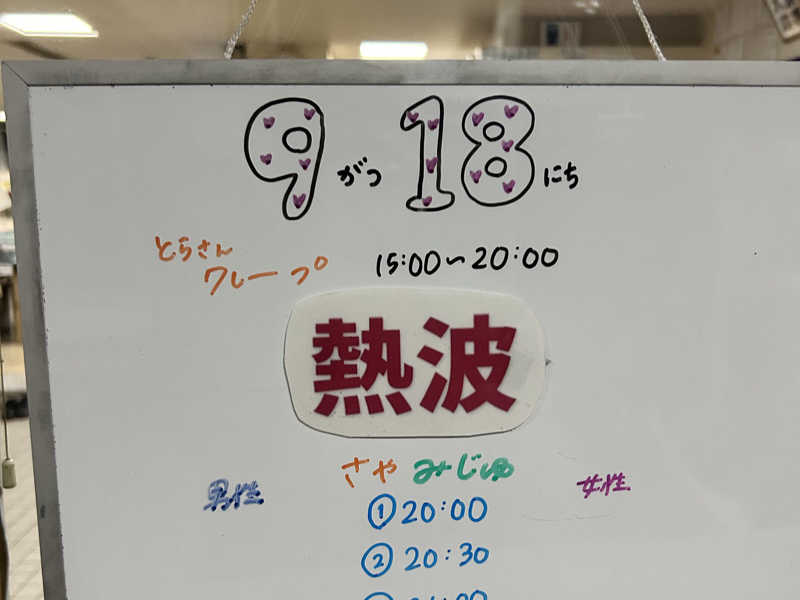 9がつ18にち
とらさん
クレープ 15:00~20:00
熱波
さや みじゅ
男性 女性
① 20:00
② 20:30